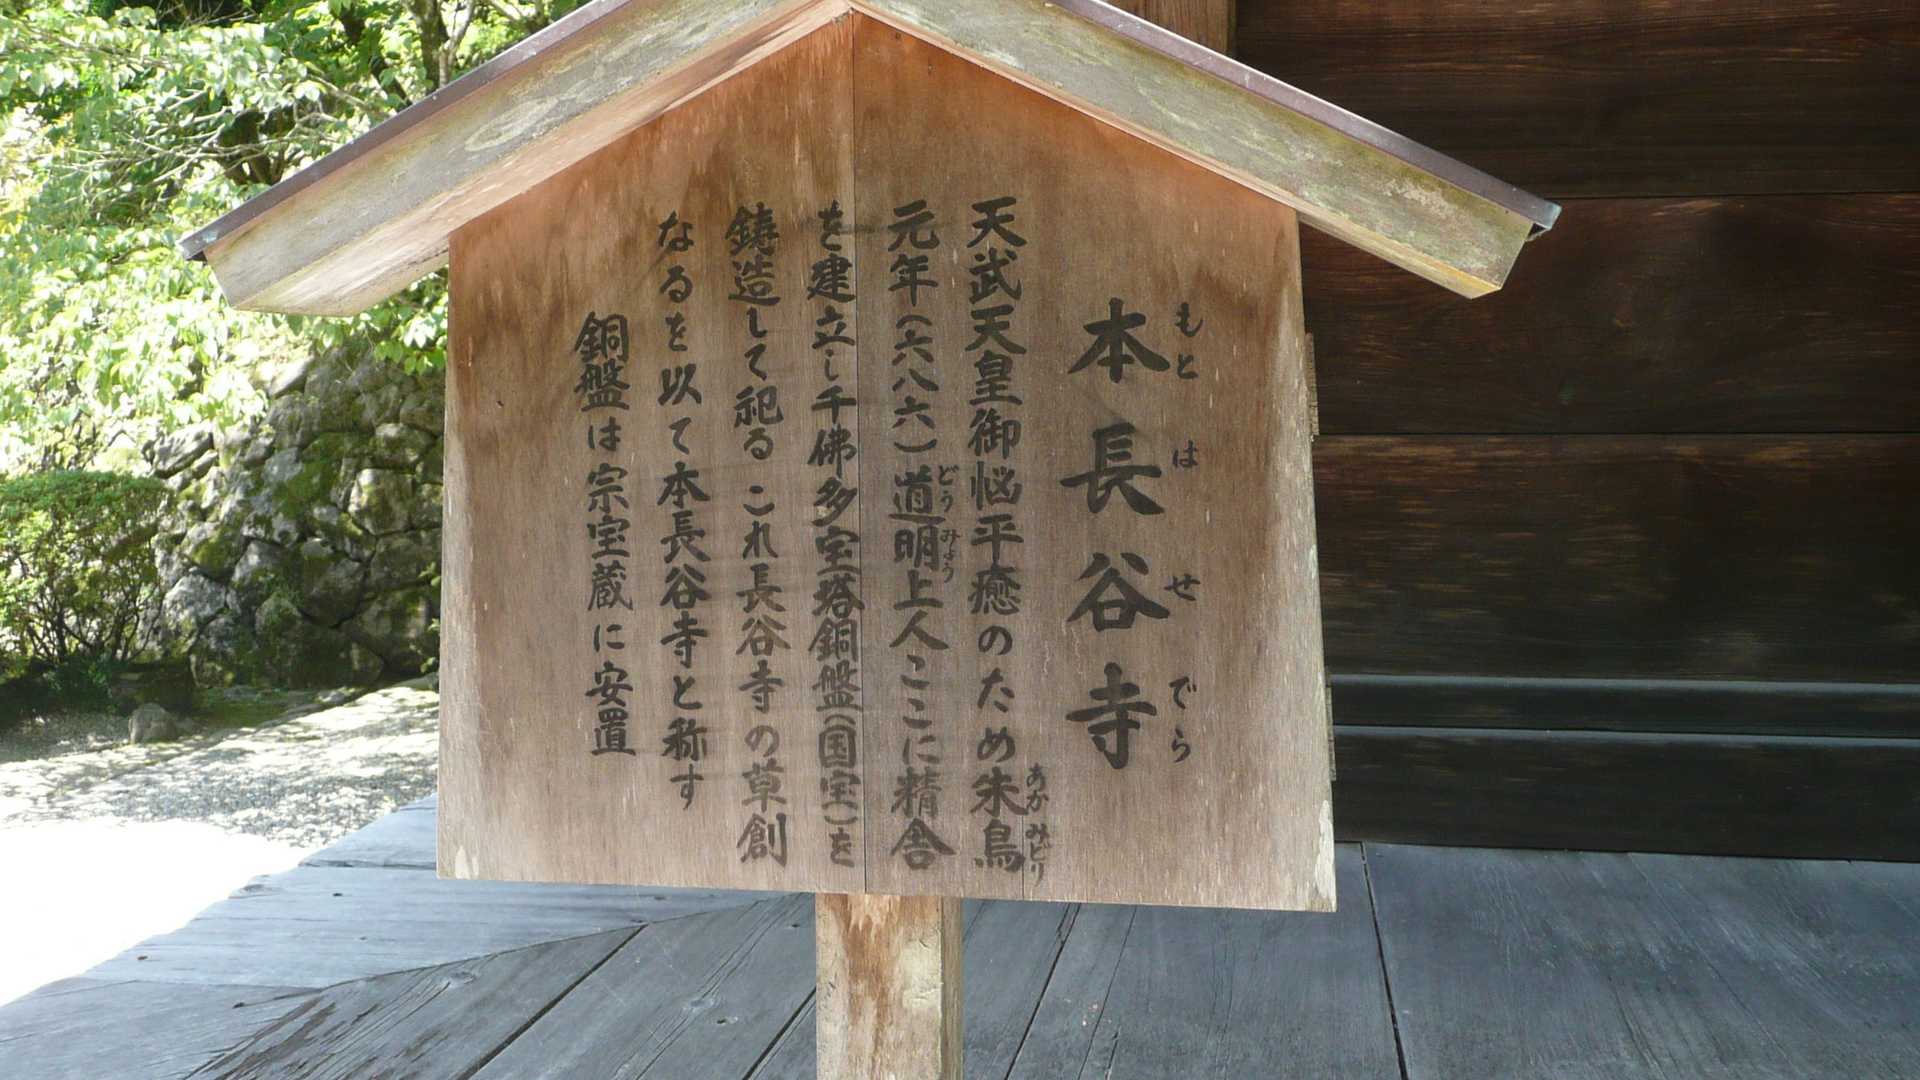 本長谷寺
もとはせでら
天武天皇御悩平癒のため朱鳥
あかみどり
元年(六八六)道明上人ここに精舎
どうみょう
を建立し千佛多宝塔銅盤(国宝)を
鋳造して祀る これ長谷寺の草創
なるを以て本長谷寺と称す
銅盤は宗宝蔵に安置